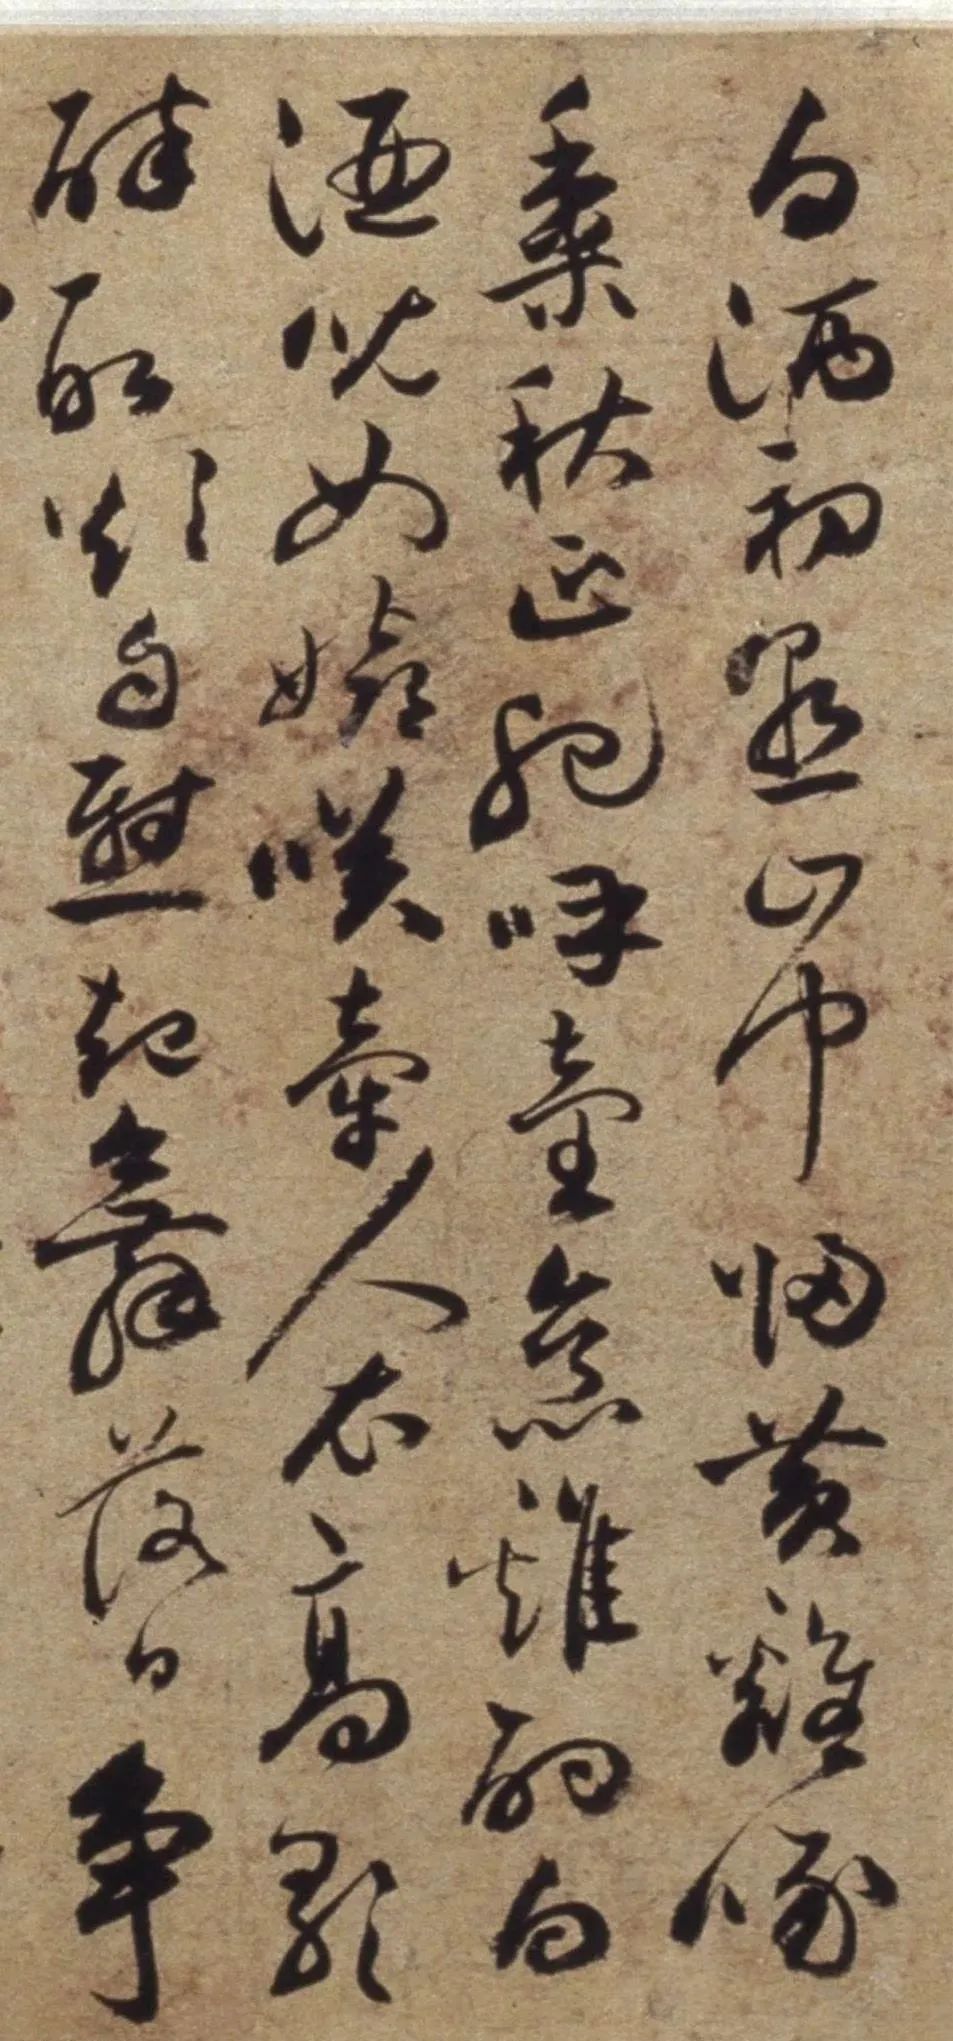 白酒初熟山中歸黃雞啄
黍秋正肥呼童烹雞酌白
酒兒女嬉咲牽人衣高歌
醉取欲自慰起舞落日爭